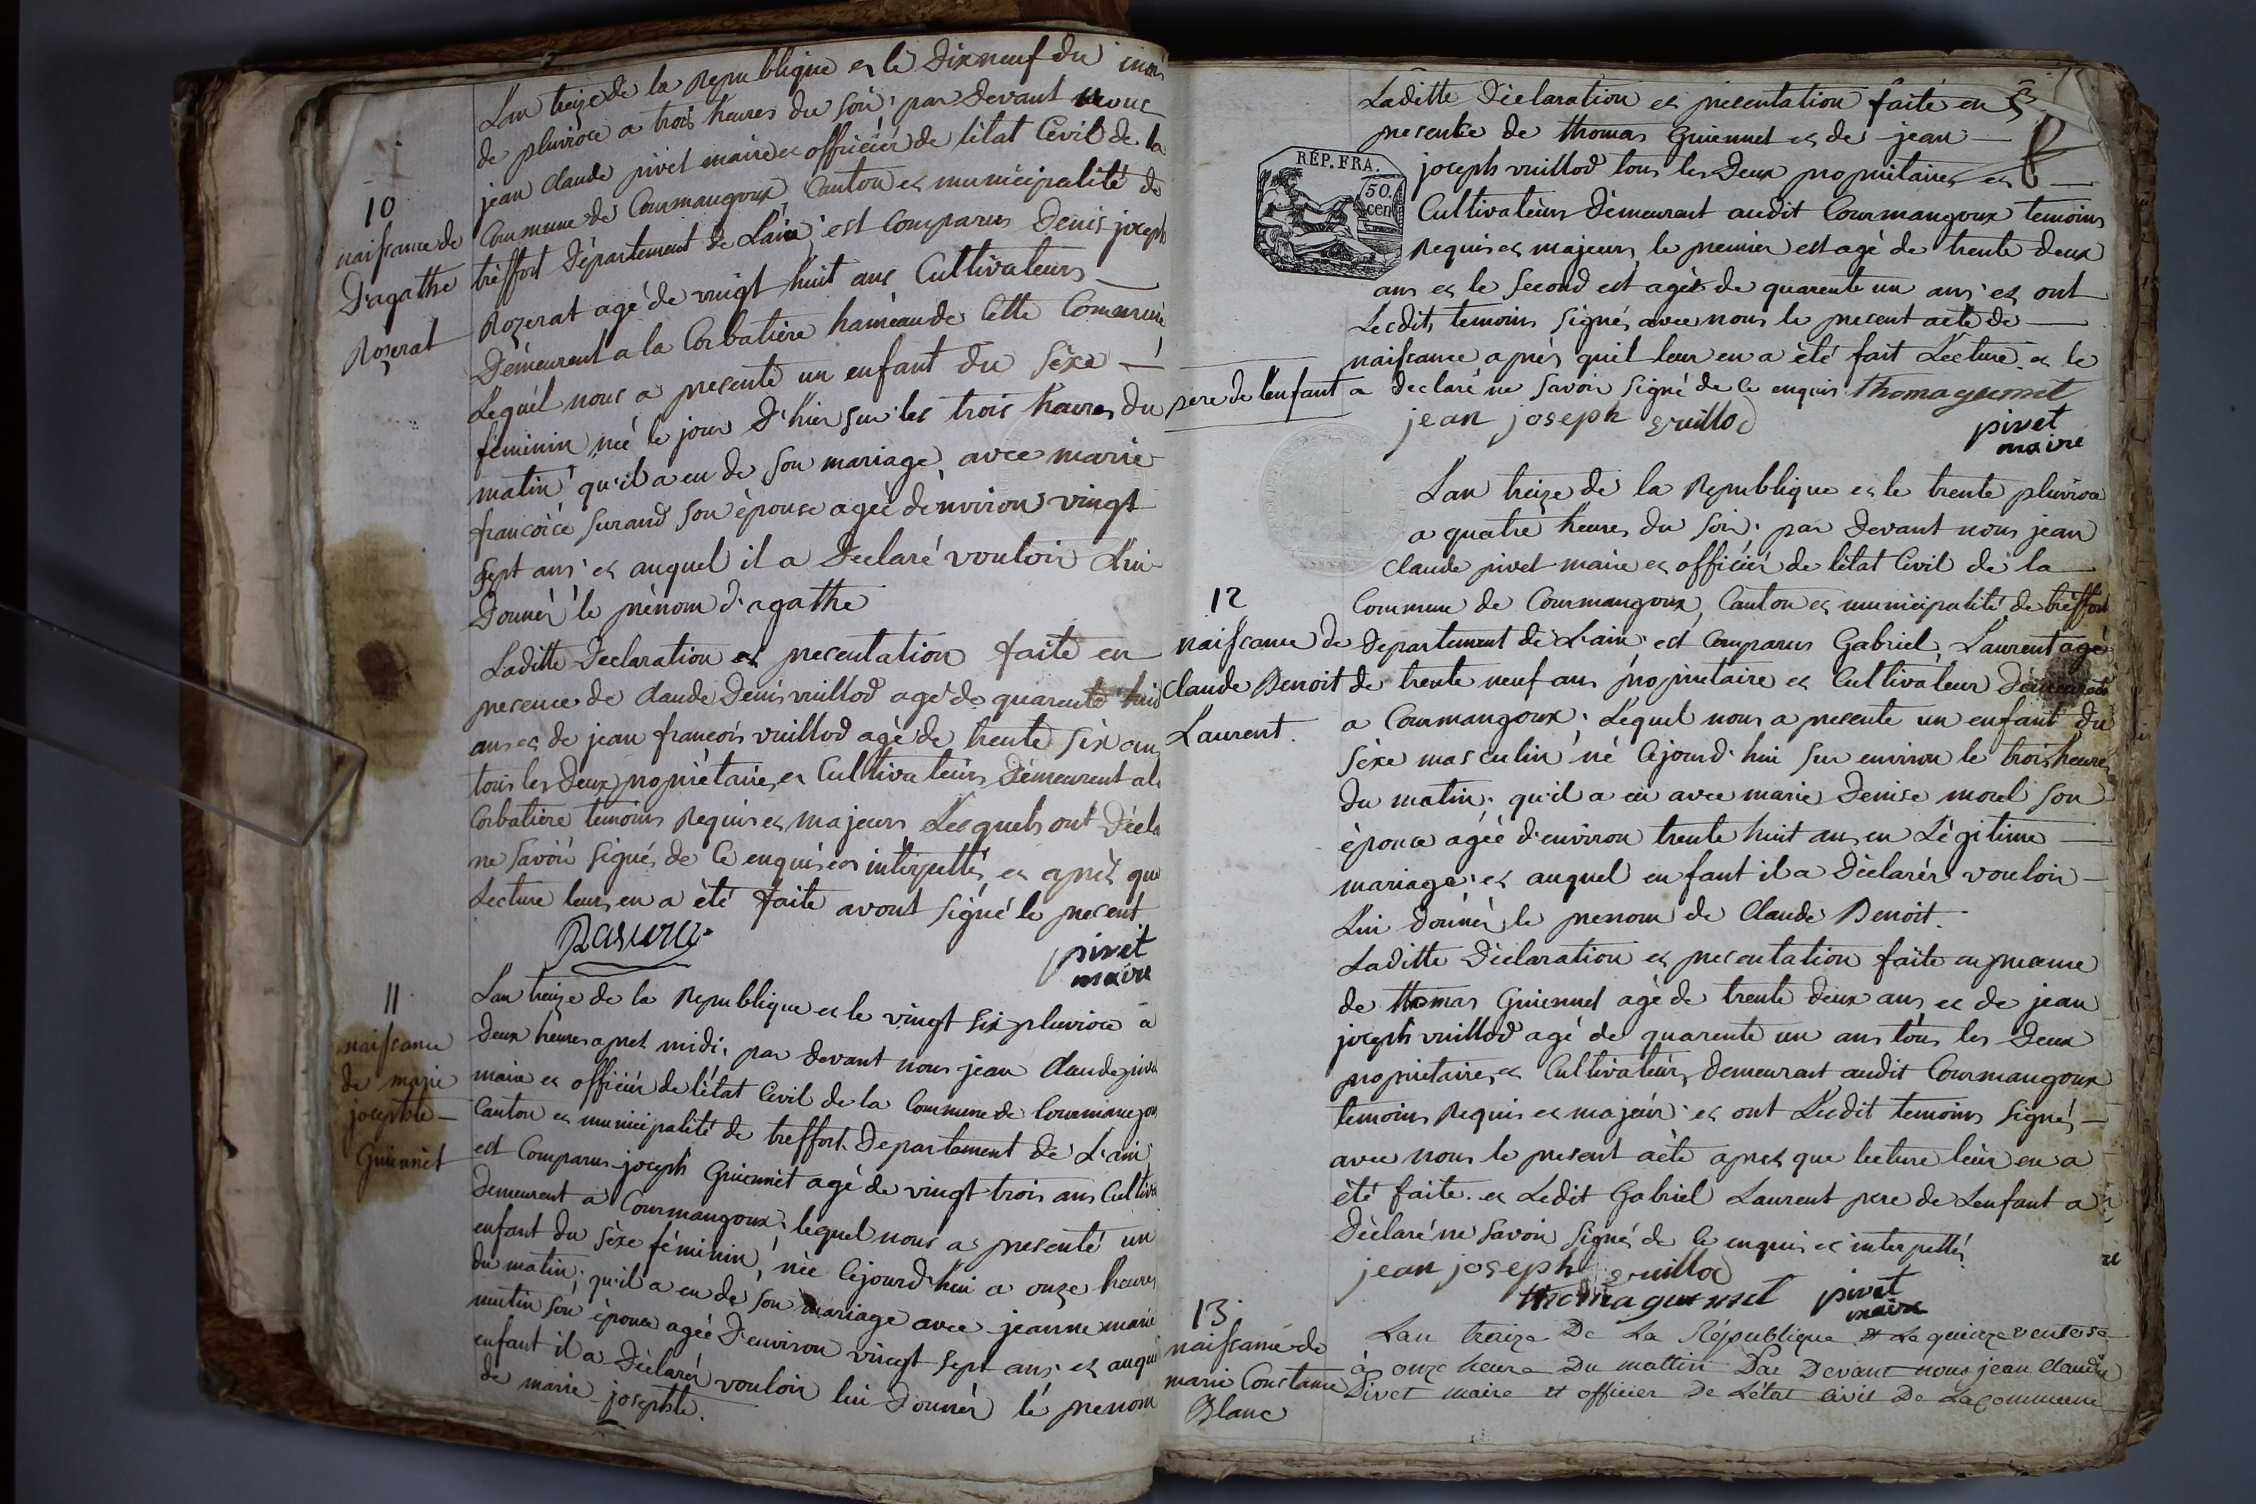 10
naissance de
D'agathe
Rozerat
L'an treize de la Republique et le Dix neuf du mois
de pluviose a trois heures du soir, par Devant nous
jean claude pivet maire et officiér de l'état Civil de la
Commune de Courmangoux, Canton et municipalité de
tréffort Département de L'ain, est Comparus Denis joseph
Rozerat agé de vingt huit ans Cultivateur
Démeurent a la Corbatière haméau de Cette Commune
Lequél nous a presenté un enfant du Séxe —
féminin née le jour D'hier sur les trois heures du
matin qu'il a eu de son mariage, avec marie
francoise Surand Son épouse agée d'environ vingt
Sept ans et auquel il a Déclaré vouloir Lui
Donnér le prénom d'agathe
Laditte Declaration et presentation faite en
presence de Claude Denis vuillod agé de quarente huit
ans et de jean francois vuillod agé de trente six ans
tous les Deux propriétaires et Cultivateurs Démeurent a la
Corbatière temoins Requis et majeurs Lesquels ont Décla
ne savoir signés de Ce enquis et intérpellés et aprés que
Lecture leurs en a été faite avont signé le present
pivet
maire
11
naissance
de marie
josephte —
Guiennet
L'an treize de la Republique et le vingt six pluviose a
Deux heures aprés midi, par devant nous jean Claude pivet
maire et officiér de l'état Civil de la Commune de Courmangoux
Canton et municipalité de treffort Departement de L'ain
est Comparus joseph Guiennet agé de vingt trois ans Cultiva
Demeurent a Courmangoux, lequel nous a presenté un
enfant du sèxe féminin, née Cejourd'hui a onze heures
du matin, qu'il a eu de son mariage avec jeanne marie
mutin son épouse agée D'environ vingt sept ans, et auquel
enfant il a Déclarér vouloir lui Donnér le prenom
de marie josephte.
Laditte Déclaration et presentation faite en
presence de thomas Guiennet et de jean —
RÉP. FRA.
50
cen
joseph vuillod tous les Deux propriétaires et —
Cultivateurs Démeurent audit Courmangoux temoins
Requis et majeurs, le premier est agé de trente deux
ans et le Second est agés de quarente un ans et ont
Lesdits temoins signés avec nous le present acte de —
naissance aprés quil leur en a été fait Lecture. et le
pere de l'enfant a declaré ne savoir signé de Ce enquis thoma guennet
jean joseph vuillod
pivet
maire
12
naissance de
Claude Benoit
Laurent.
L'an treize de la Republique et le trente pluviose
a quatre heures du soir, par Devant nous jean
Claude pivet maire et officiér de l'état Civil de la —
Commune de Courmangoux, Canton et municipalité de tréffort
Departement de L'ain est Comparus Gabriel Laurent agé
de trente neuf ans propriétaire et Cultivateur Démeurent
a Courmangoux, Lequel nous a presenté un enfant du
Séxe masculin né Cejourd'hui sur environ le trois heures
du matin, qu'il a eu avec marie Denise morel son
épouse agée d'environ trente huit ans en Légitime —
mariage, et auquel enfant il a Déclarér vouloir —
Lui donnér le prenom de Claude Benoit.
Laditte Déclaration et presentation faite en presence
de thomas Guiennet agé de trente deux ans et de jean
joseph vuillod agé de quarente un ans tous les Deux
propriétaires et Cultivateurs, demeurant audit Courmangoux
temoins Requis et majeur, et ont Lesdit temoins signés —
avec nous le present acte aprés que lecture leur en a
été faite. et Ledit Gabriel Laurent pere de Lenfant a
Déclaré ne savoir signés de Ce enquis et interpellés
jean joseph vuillod
thoma guennet pivet
maire
13
naissance de
marie Constance
Blanc
L'an treize De La République et Le quinze ventose
à onze heure Du mattin Par Devant nous jean claude
Pivet maire et officier De L'état civil De La Commune